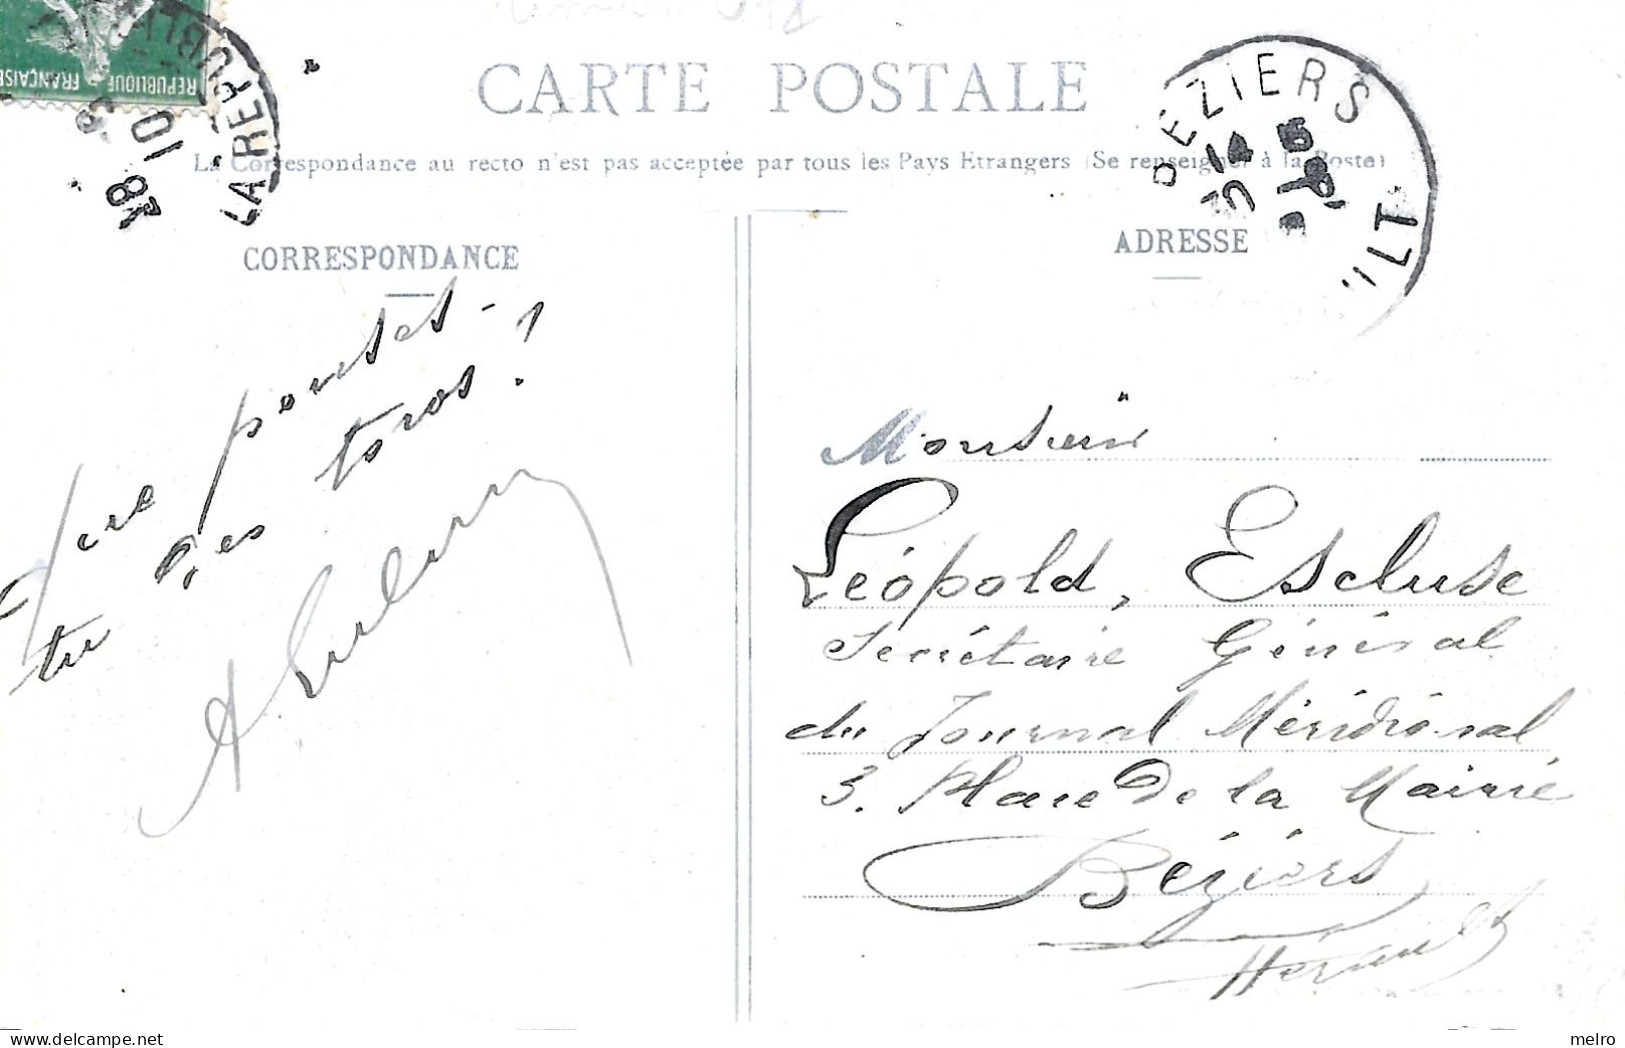 CARTE POSTALE
La Correspondance au recto n'est pas acceptée par tous les Pays Etrangers (Se renseigner à la Poste)
REPUBLIQUE FRANÇAISE
18 10
LA REPUBLI
BEZIERS
14
ILT
CORRESPONDANCE
que penses-
tu des toros ?
ADRESSE
Monsieur
Léopold, Escluse
Secrétaire Général
du Journal Méridional
3. Place de la Mairie
Béziers
Hérault
melro